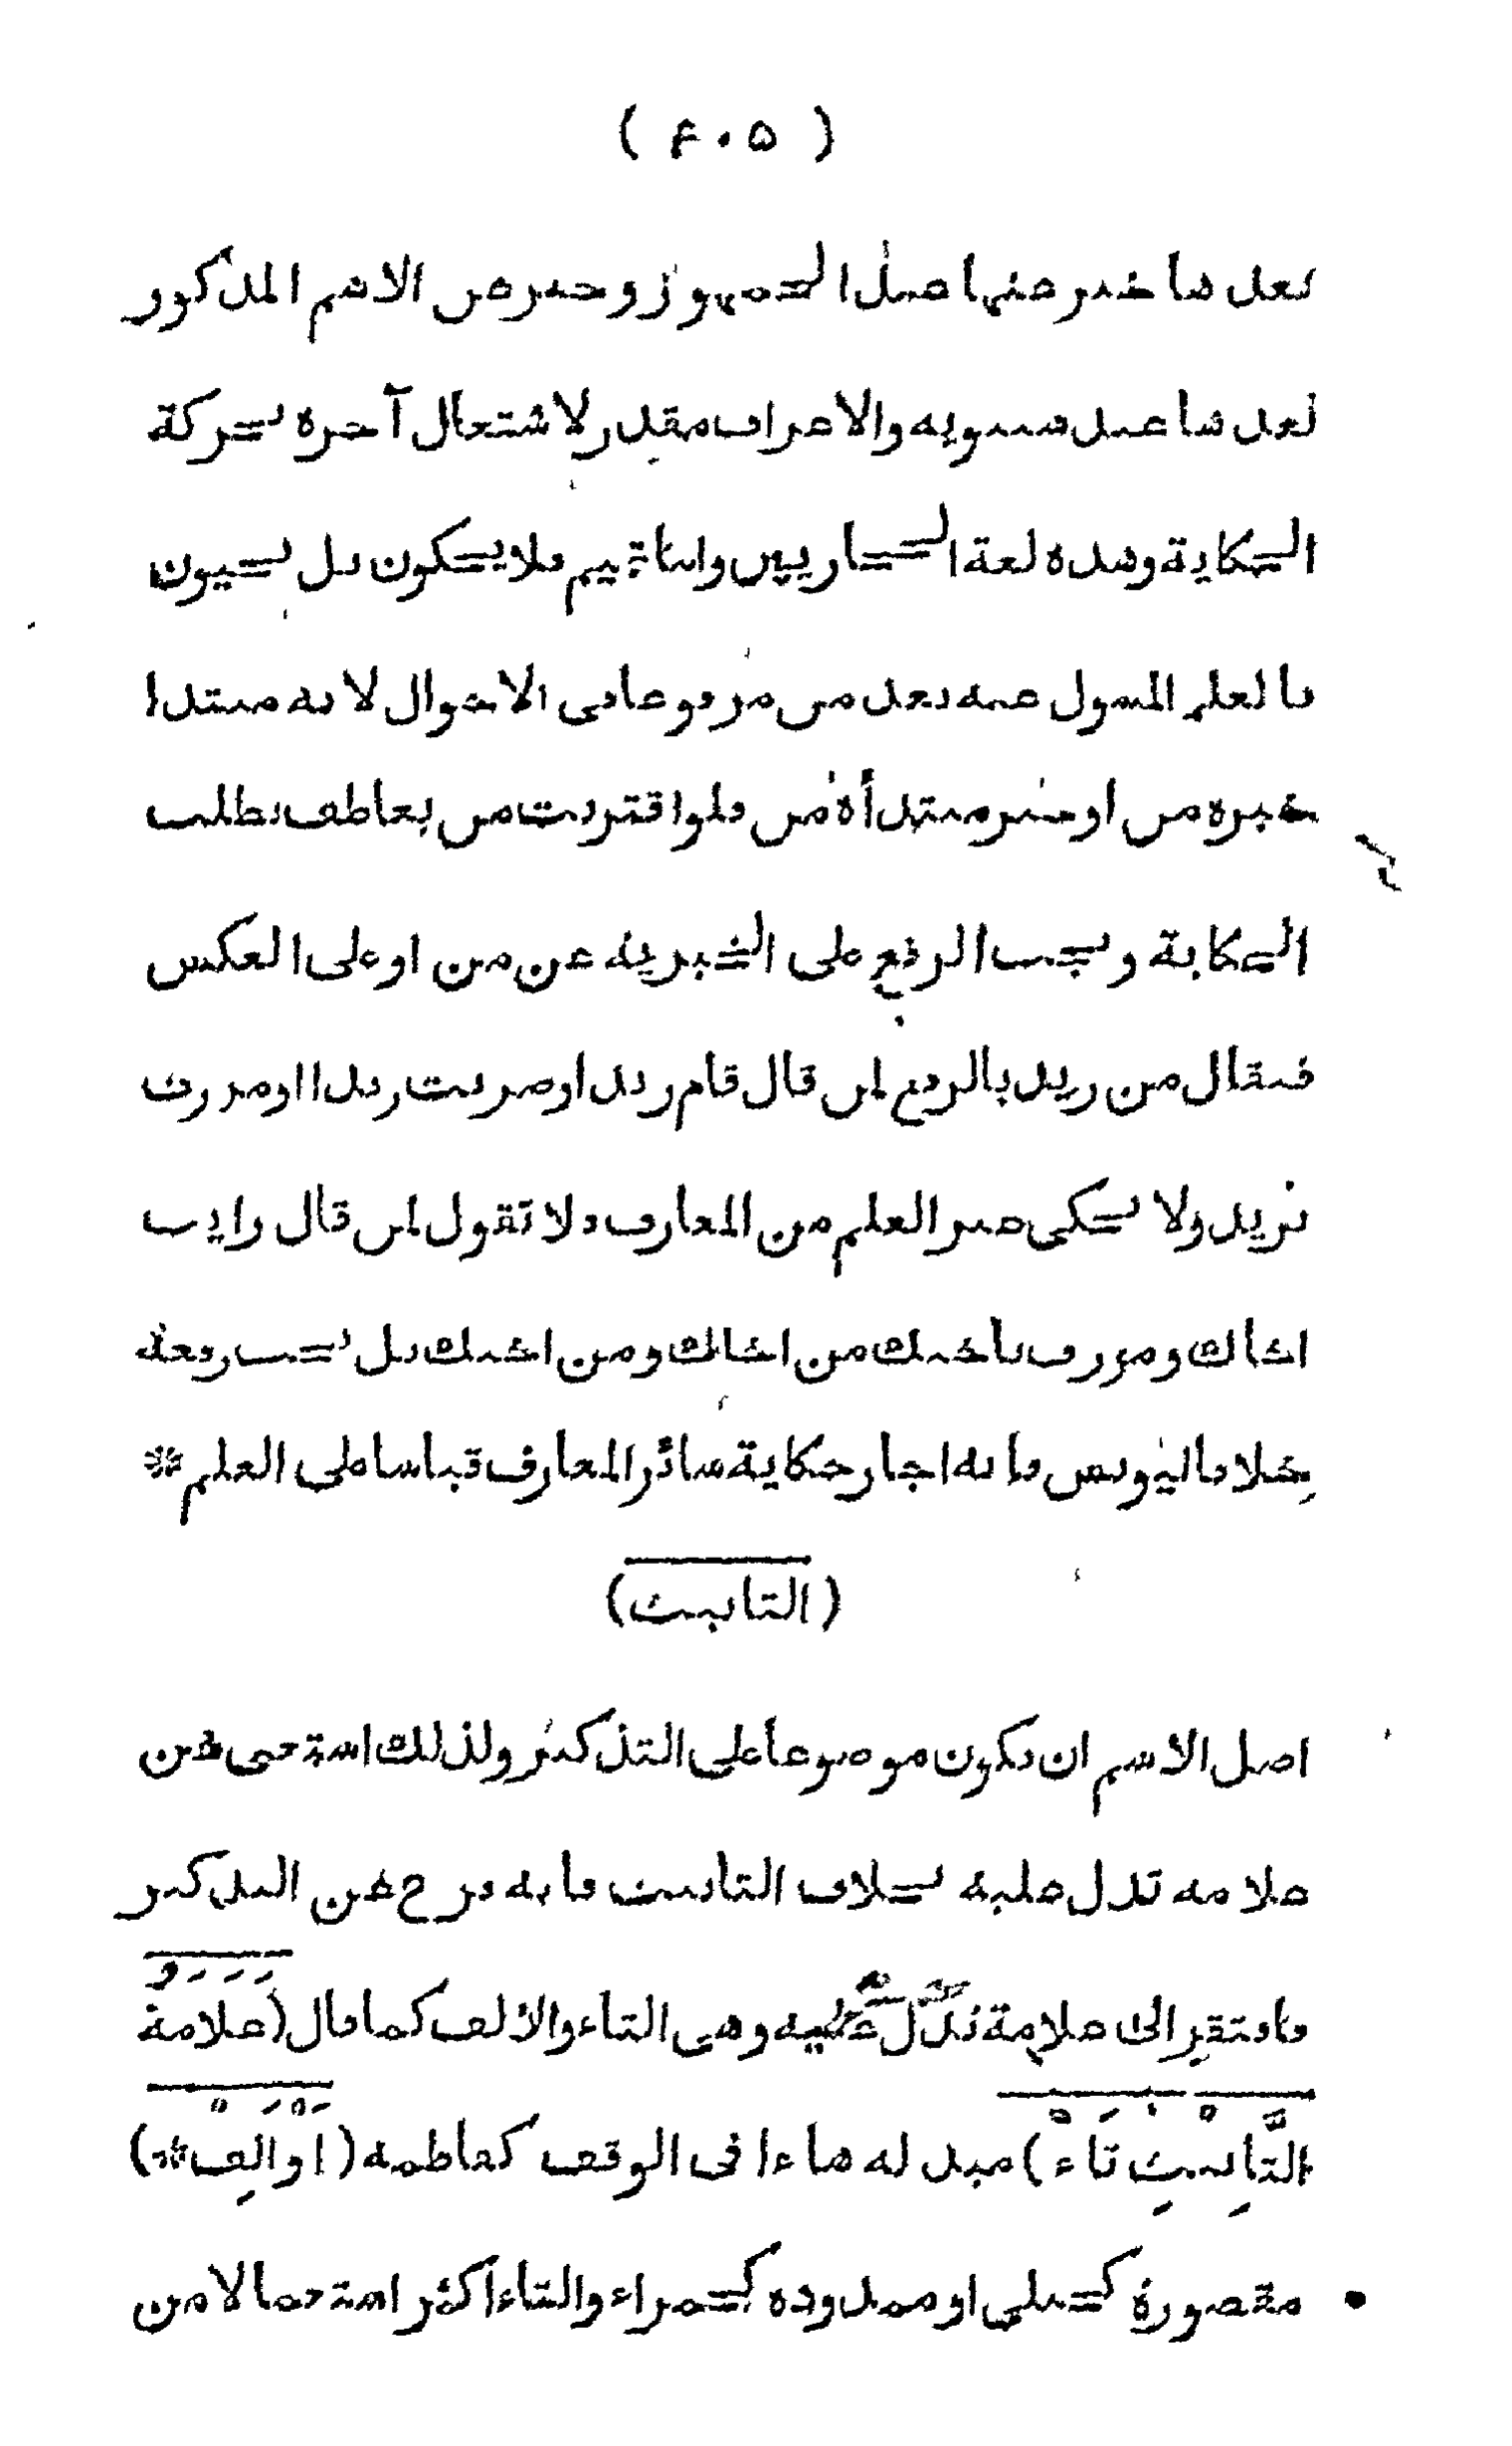 ( ۴۰۵ )
بعدها خبر عنها عند الجمهور وخبر عن الاسم المذكور
بعدها عند سيبويه والاعراب مقدر لاشتغال آخره بحركة
الحكاية وهذه لغة الحجازيين واما تميم فلا يحكون بل يجيون
بالعلم المسول عنه بعد من مرفوعا فى الاحوال لانه مبتدا
خبره من او خبر مبتدأه من فلو اقتربت من بعاطف بطلت
الحكاية ويجب الرفع على الخبرية عن من او على العكس
فيقال من زيد بالرفع لمن قال قام زيد او ضربت زيدا او مررت
بزيد ولا يحكى غير العلم من المعارف فلا تقول لمن قال رايت
اخاك ومررت باخيك من اخاك ومن اخيك بل يجب رفعه
بخلافا ليونس فانه اجاز حكاية سائر المعارف قياسا على العلم *
(التانيث)
اصل الاسم ان يكون موضوعا على التذكير ولذلك استغنى عن
علامه تدل عليه بخلاف التانيث فانه فرع عن التذكير
فافتقر الى علامة تدل عليه وهى التاء والالف كما قال (عَلَامَةُ
التَّانِيْثِ تَاءٌ) مبدله هاءا فى الوقف كفاطمه (اَوْ اَلِفٌ *)
مقصورة كحبلى او ممدوده كحمراء والتاء اكثر استعمالا من